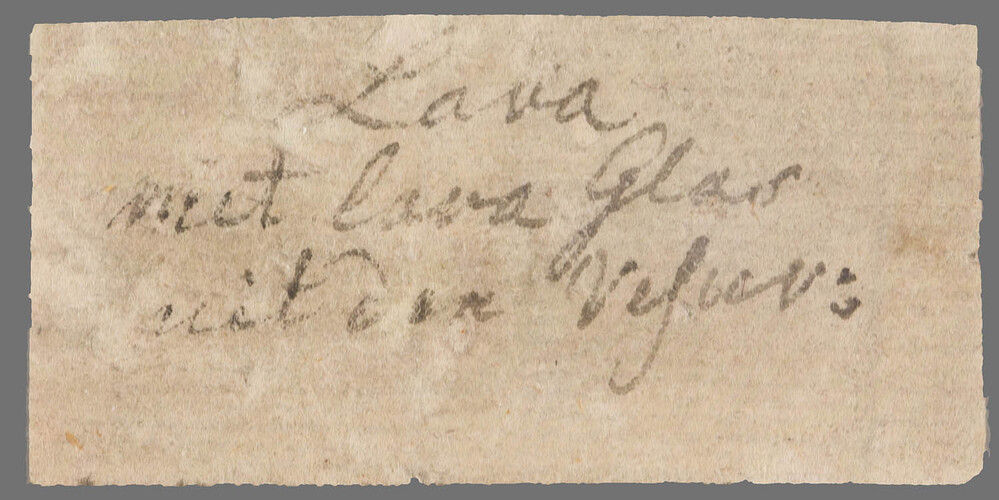 Lava
met lava Glas
uit den Vesuv: